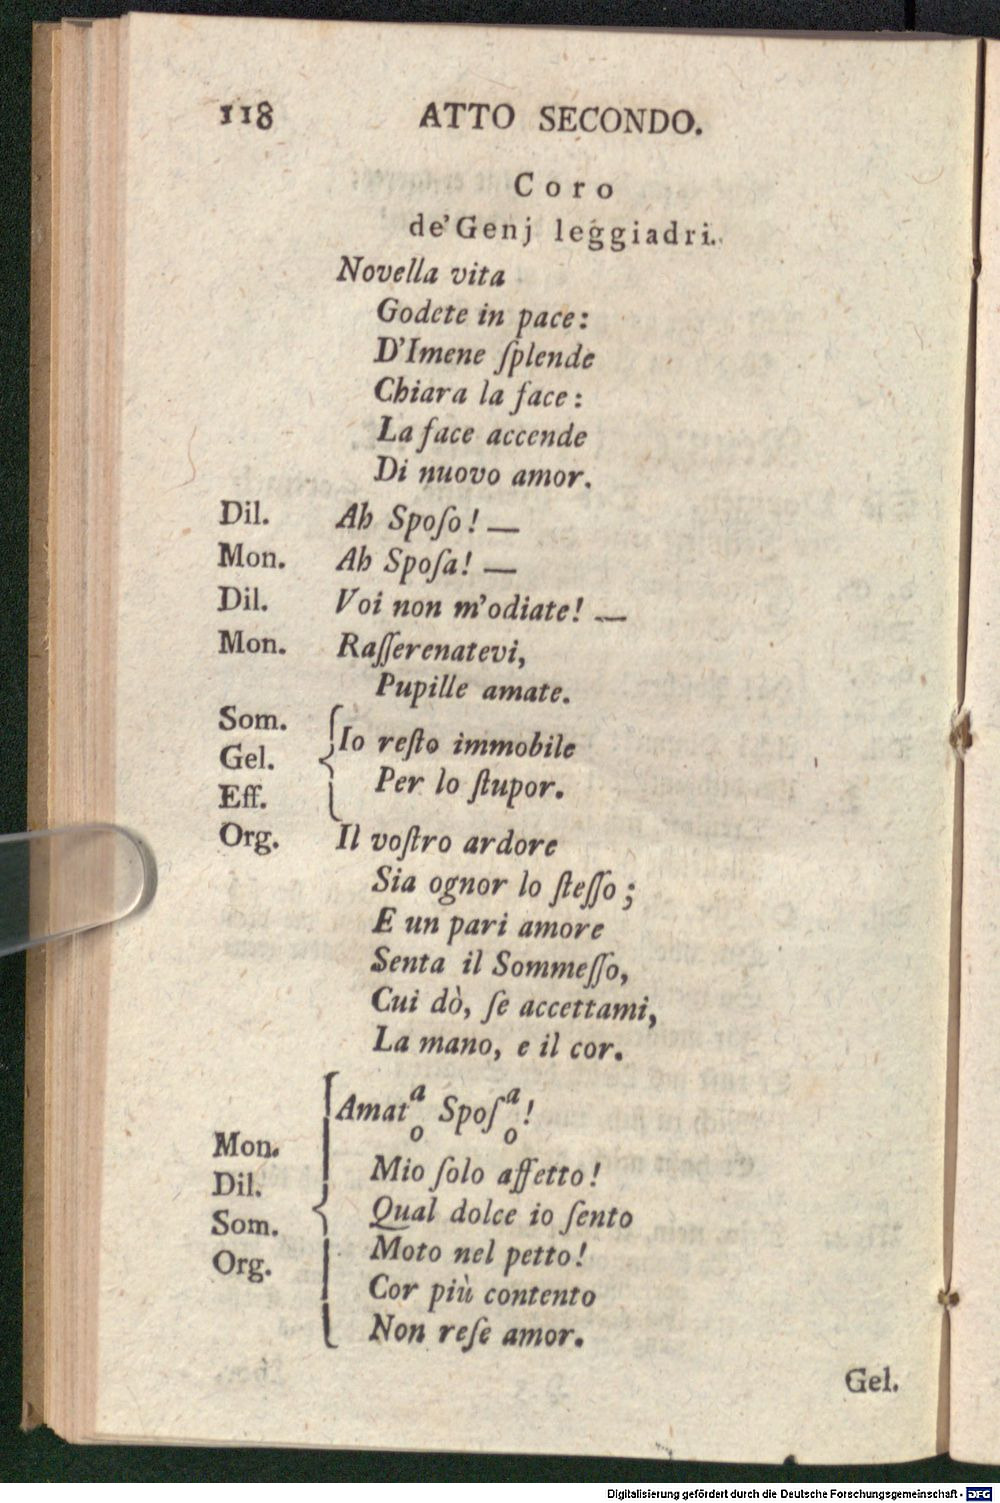 118 ATTO SECONDO.
Coro
de' Genj leggiadri.
Novella vita
Godete in pace:
D'Imene ſplende
Chiara la face:
La face accende
Di nuovo amor.
Dil. Ah Spoſo! —
Mon. Ah Spoſa! —
Dil. Voi non m'odiate! —
Mon. Raſſerenatevi,
Pupille amate.
Som.
Gel.
Eff.
Io reſto immobile
Per lo ſtupor.
Org. Il voſtro ardore
Sia ognor lo ſteſſo;
E un pari amore
Senta il Sommeſſo,
Cui dò, ſe accettami,
La mano, e il cor.
Mon.
Dil.
Som.
Org.
Amat a/o Spoſ a/o!
Mio ſolo affetto!
Qual dolce io ſento
Moto nel petto!
Cor più contento
Non reſe amor.
Gel.
Digitalisierung gefördert durch die Deutsche Forschungsgemeinschaft - DFG